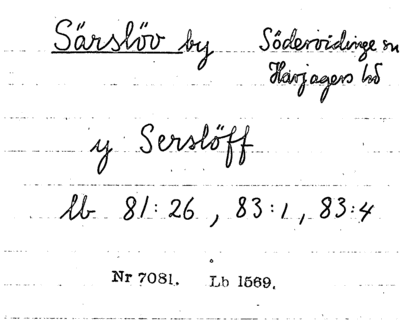 Särslöv by Södervidinge sn
Harjagers hd
y Serslöff
lb 81:26, 83:1, 83:4
Nr 7081. Lb 1569.